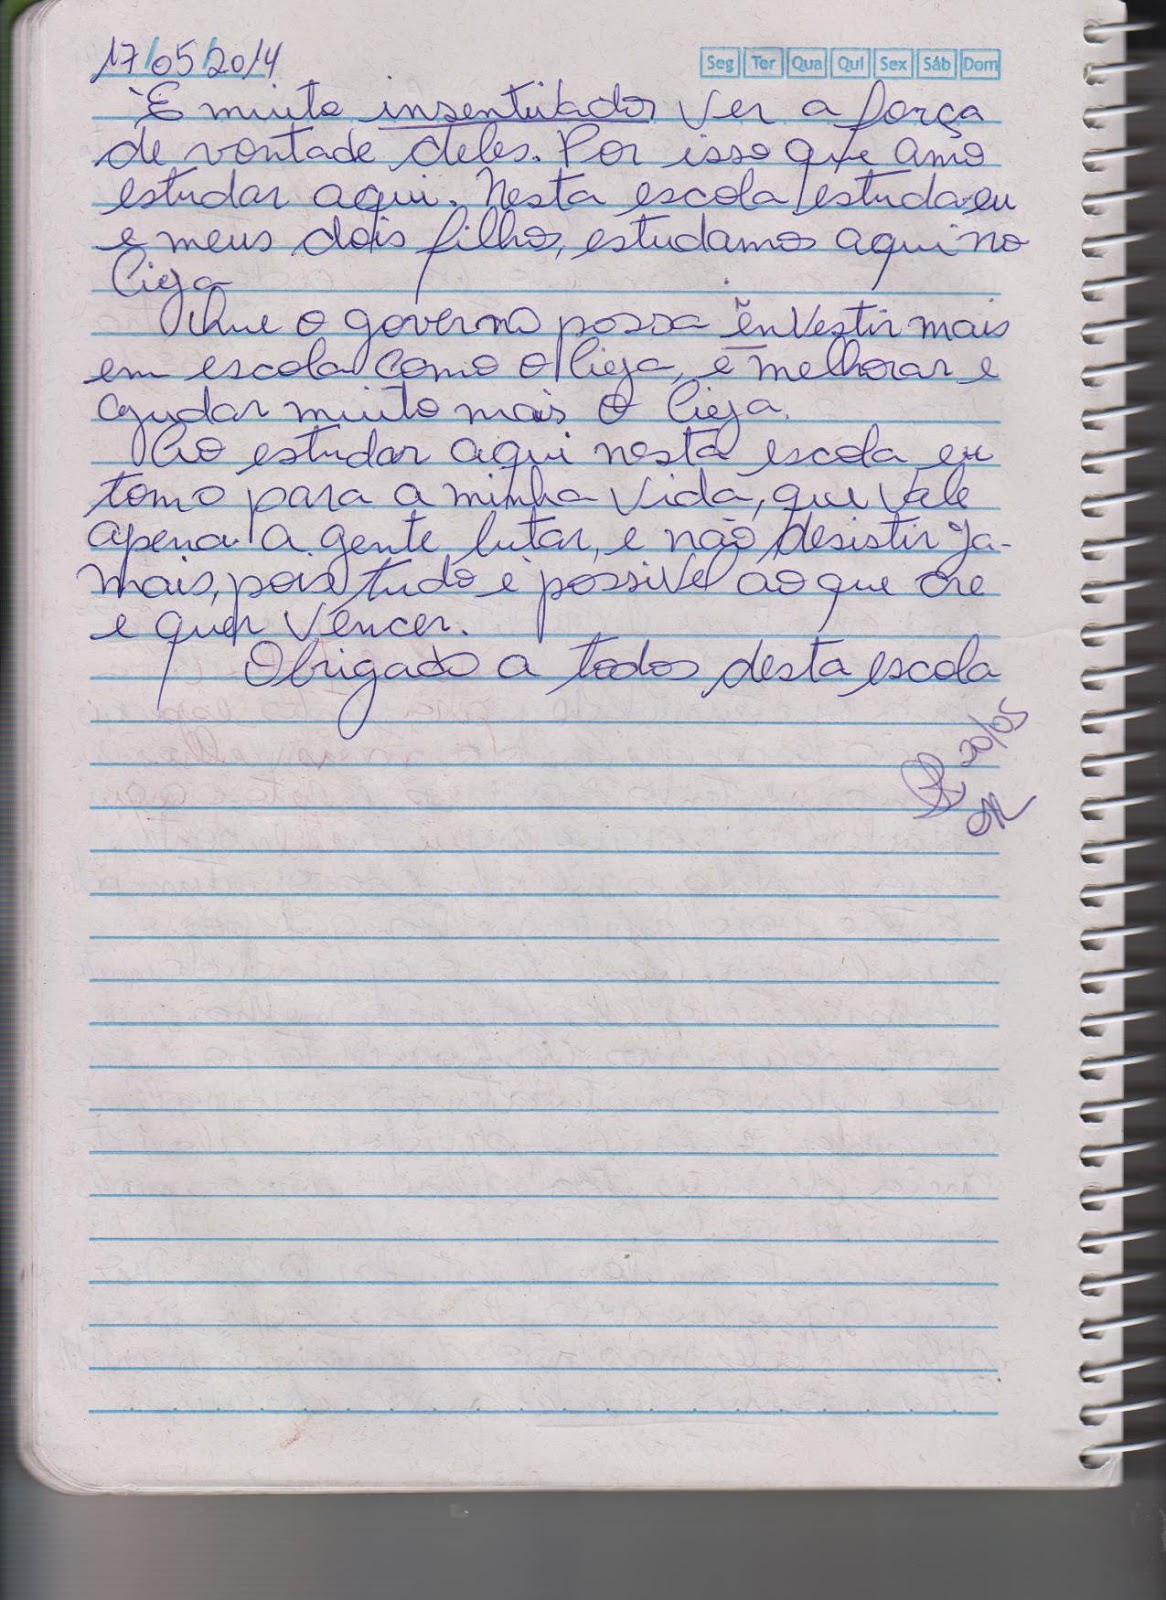 17/05/2014
Seg Ter Qua Qui Sex Sáb Dom
É muito insentivador ver a força
de vontade deles. Por isso que amo
estudar aqui. Nesta escola estuda eu
e meus dois filho, estudamos aqui no
Cieja
Que o governo possa envestir mais
em escola como o Cieja, e melhorar e
ajudar muito mais o Cieja.
Ao estudar aqui nesta escola eu
tomo para a minha vida, que vale
apena a gente lutar, e não desistir ja-
mais, pois tudo é possivel ao que cre
e quer vencer.
Obrigado a todos desta escola
20/05
OK